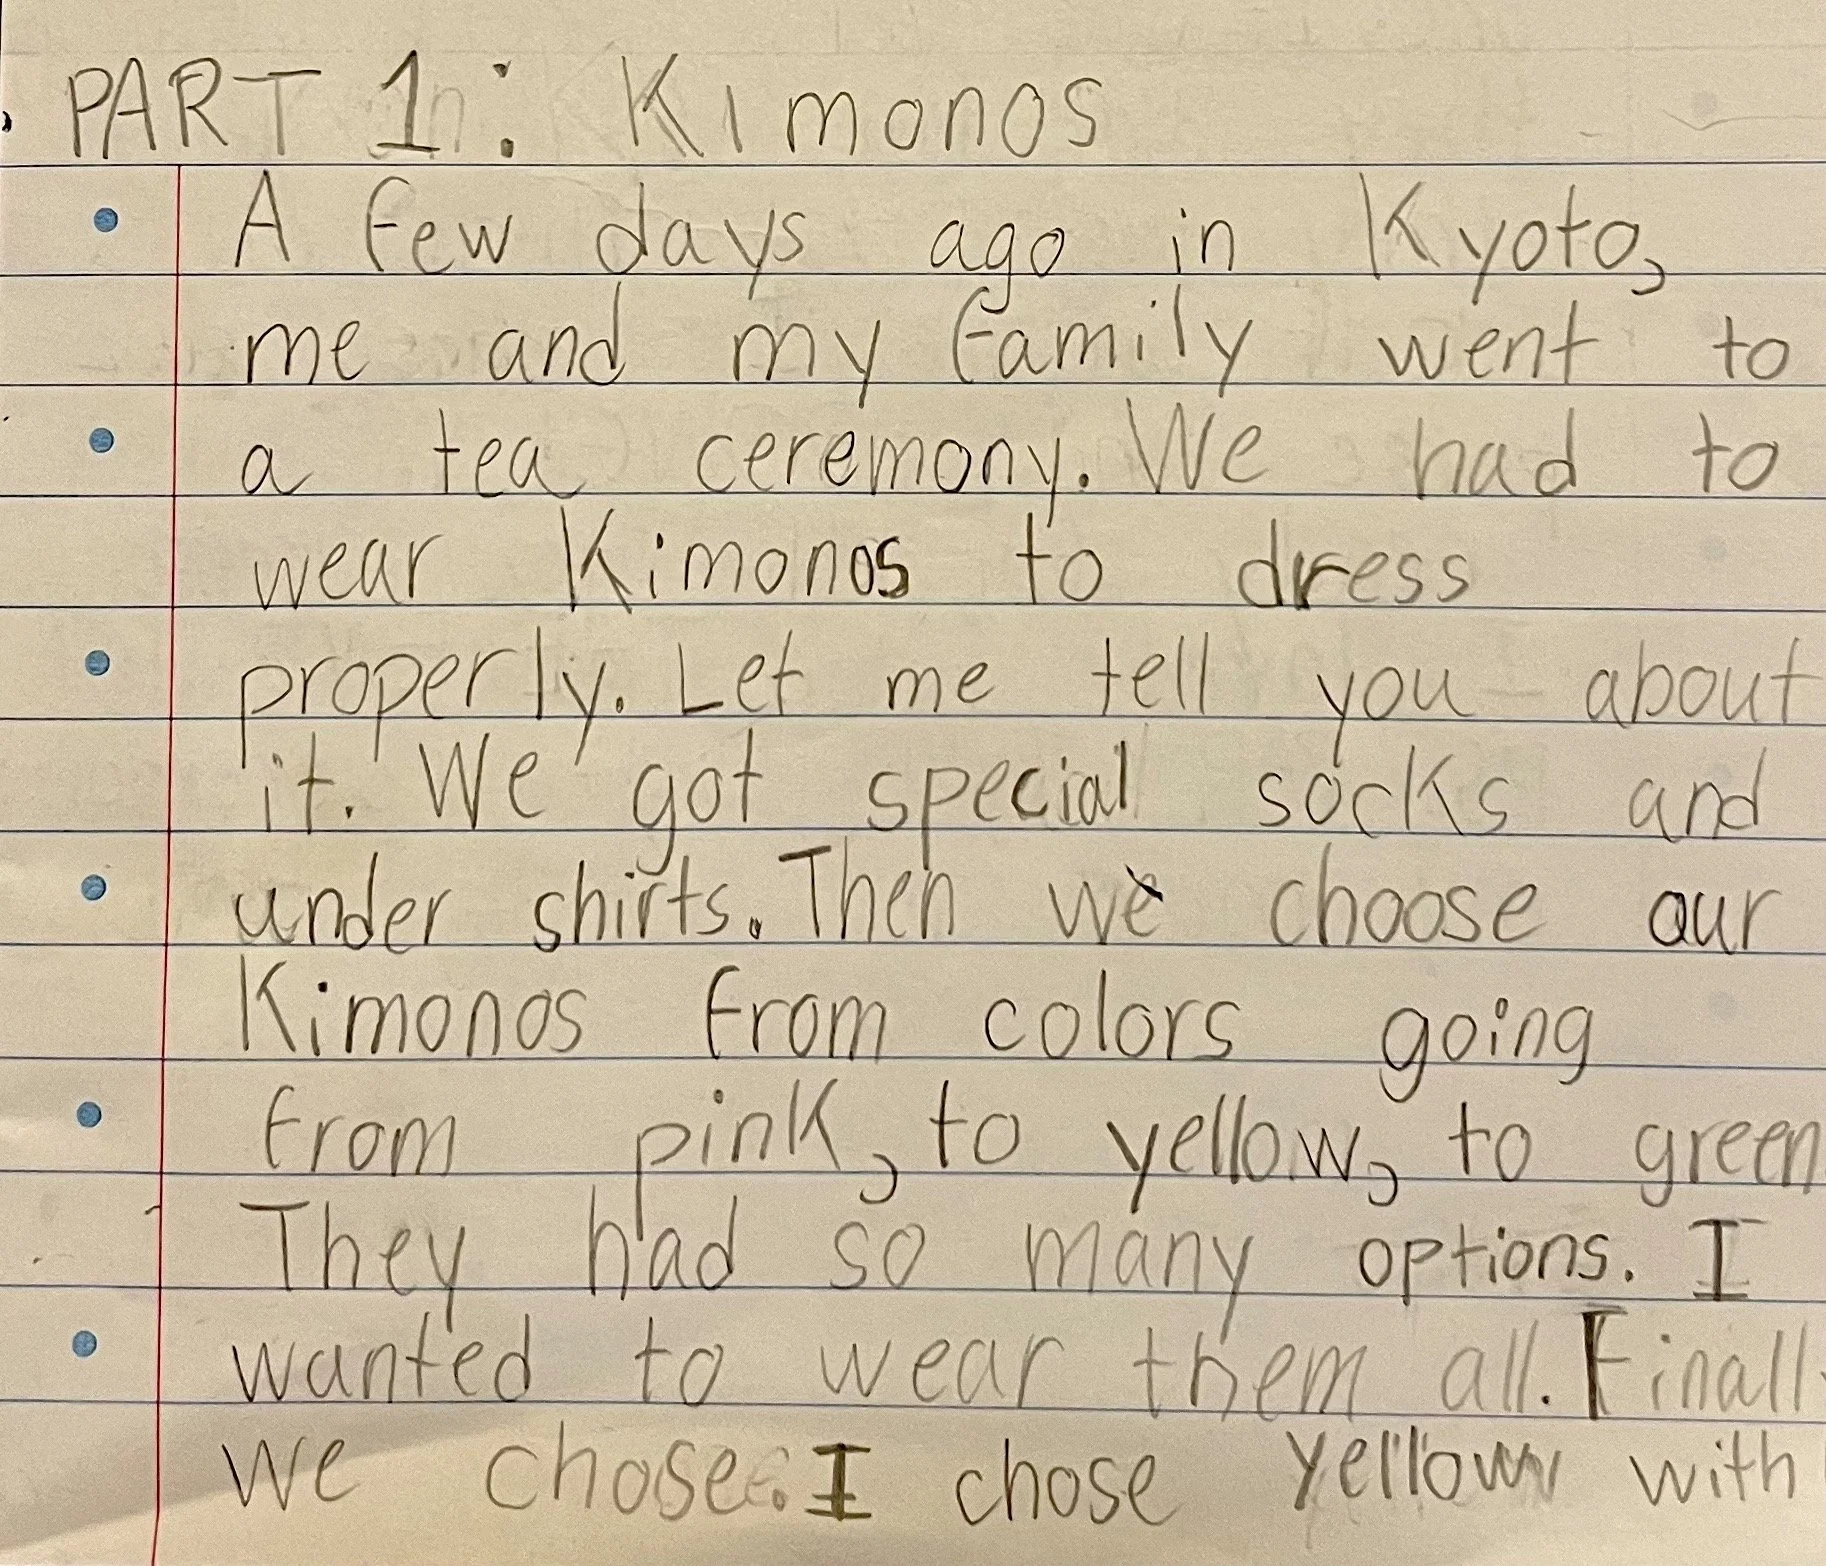 PART 1: Kimonos
A few days ago in Kyoto,
me and my family went to
a tea ceremony. We had to
wear Kimonos to dress
properly. Let me tell you about
it. We got special socks and
under shirts. Then we choose our
Kimonos from colors going
from pink, to yellow, to green
They had so many options. I
wanted to wear them all. Finall
we chose. I chose yellow with